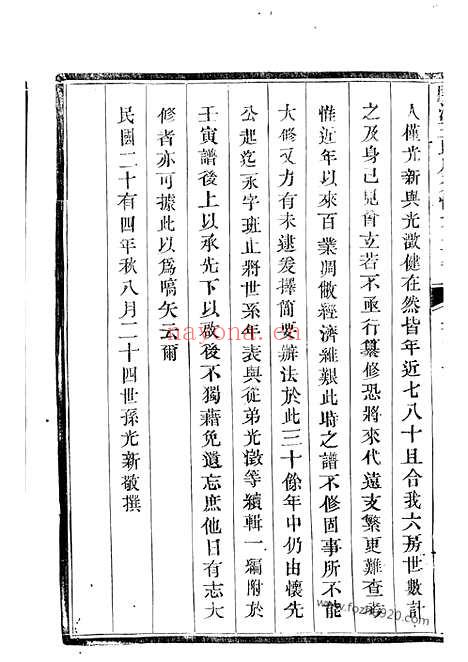 人僅光新與光澂健在然皆年近七八十且合我六房世數計
之及身已見曾玄若不亟行纂修恐將來代遠支繁更難查考
惟近年以來百業凋敝經濟維艱此時之譜不修固事所不能
大修又力有未逮爰擇簡要辦法於此三十餘年中仍由懷先
公起迄永字班止將世系年表與從弟光澂等續輯一編附於
壬寅譜後上以承先下以啟後不獨藉免遺忘庶他日有志大
修者亦可據此以為嚆矢云爾
民國二十有四年秋八月二十四世孫光新敬撰
nayona.cn
www.fozhu920.com